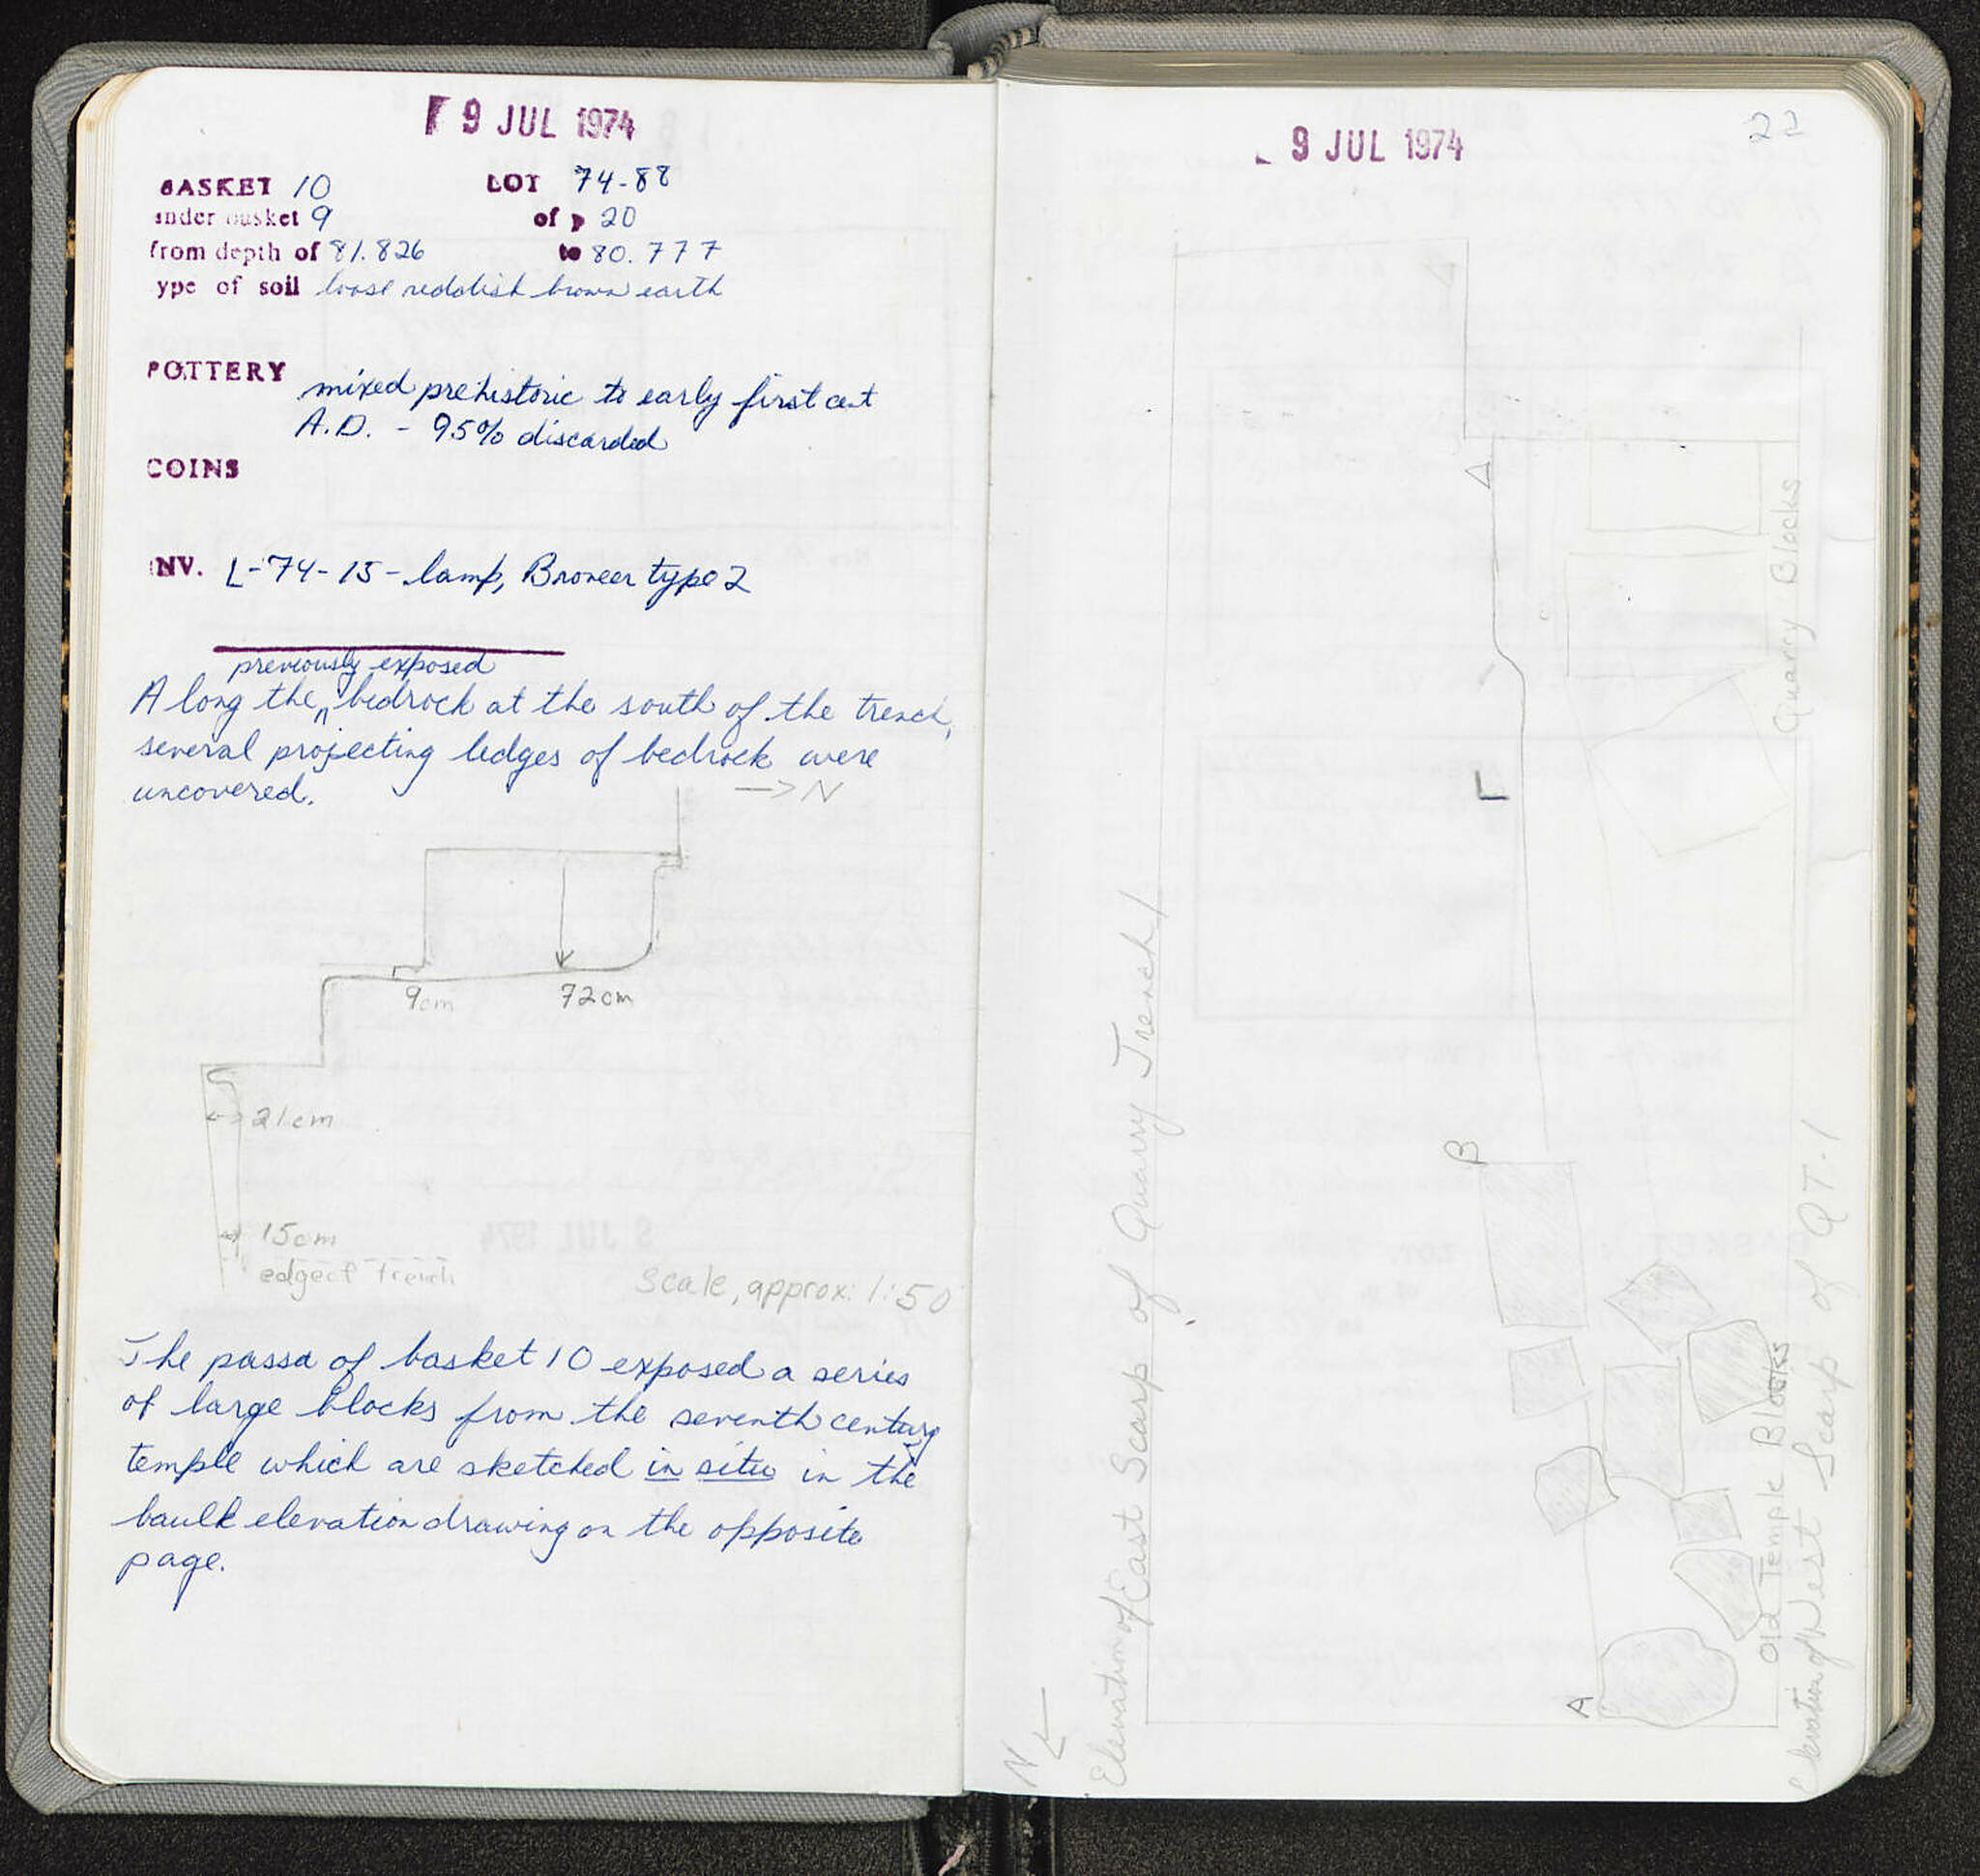 9 JUL 1974
BASKET 10 LOT 74-88
under basket 9 of p 20
from depth of 81.826 to 80.777
ype of soil loose reddish brown earth
POTTERY mixed prehistoric to early first cent
A.D. - 95% discarded
COINS
INV. L-74-15-lamp, Broneer type 2
previously exposed
Along the ^ bedrock at the south of the trench,
several projecting ledges of bedrock were
uncovered.
→ N
9cm 72cm
21cm
15cm
edge of trench
Scale, approx: 1:50
The passa of basket 10 exposed a series
of large blocks from the seventh century
temple which are sketched in situ in the
baulk elevation drawing on the opposite
page.
9 JUL 1974
22
Elevation of East Scarp of Quarry Trench 1
N
A
L
B
A
Quarry Blocks
Old Temple Blocks
Elevation of West Scarp of QT-1